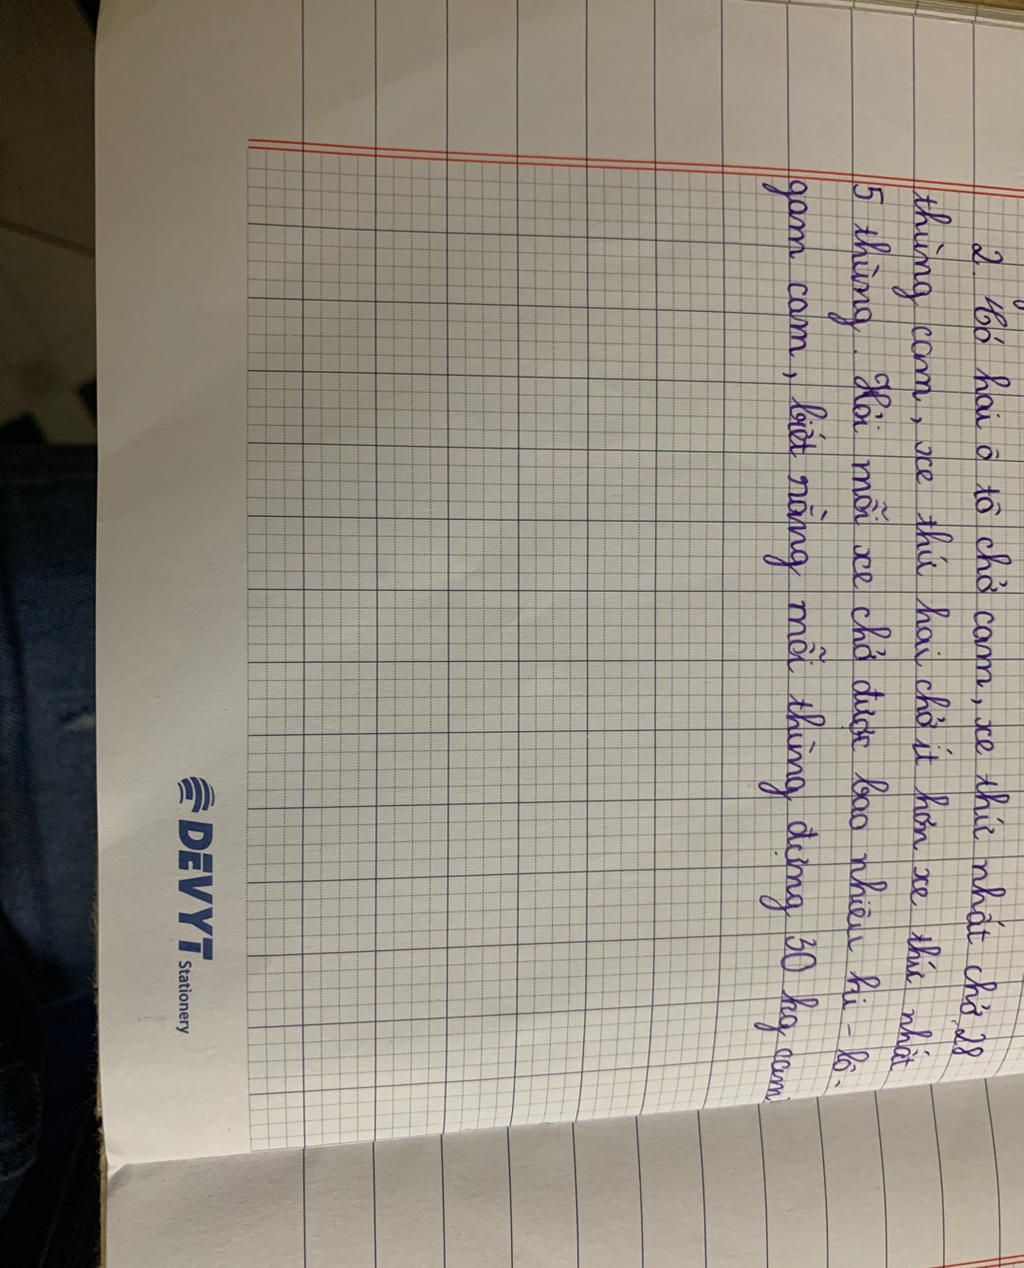 2. Có hai ô tô chở cam, xe thứ nhất chở 28
thùng cam, xe thứ hai chở ít hơn xe thứ nhất
5 thùng. Hỏi mỗi xe chở được bao nhiêu ki-lô-
gam cam, biết rằng mỗi thùng đựng 30 kg cam
DEVYT Stationery